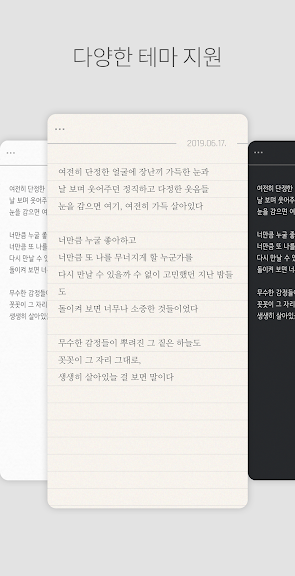 다양한 테마 지원
2019.06.17.
여전히 단정한 얼굴에 장난끼 가득한 눈과
날 보며 웃어주던 정직하고 다정한 웃음들
눈을 감으면 여기, 여전히 가득 살아있다
너만큼 누굴 좋아하고
너만큼 또 나를 무너지게 할 누군가를
다시 만날 수 있을까 수 없이 고민했던 지난 밤들
도
돌이켜 보면 너무나 소중한 것들이었다
무수한 감정들이 뿌려진 그 짙은 하늘도
꼿꼿이 그 자리 그대로,
생생히 살아있늘 걸 보면 말이다
여전히 단정한
날 보며 웃어
눈을 감으면 여
너만큼 누굴
너만큼 또 나를
다시 만날 수
돌이켜 보면 너
무수한 감정들이
꼿꼿이 그 자리
생생히 살아있
여전히 단정한
날 보며 웃어
눈을 감으면 여
너만큼 누굴
너만큼 또 나를
다시 만날 수
돌이켜 보면 너
무수한 감정들
꼿꼿이 그 자
생생히 살아있